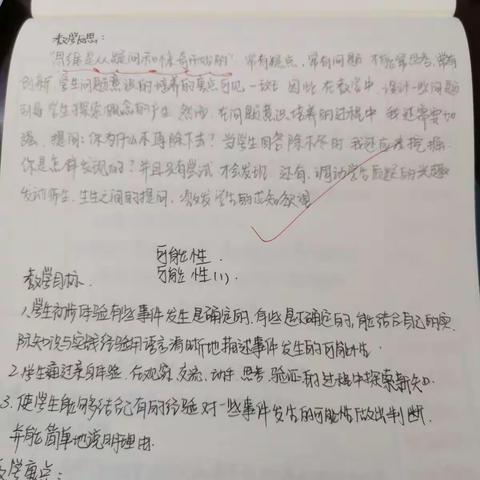 教学反思：
"思维是从疑问和惊奇开始的"常有疑点，常有问题 才能常思考，常有
创新，学生问题意识的培养的重点可见一斑，因此 在教学中，设计一些问题
引导学生探索概念的产生 然而，在问题意识培养的过程中 我还需要加
强，提问：你为什么不再除下去？当学生回答除不尽时 我还应去挖掘：
你是怎样发现的？并且只有尝试 才会发现 还有，调动学生质疑的兴趣
发动师生，生生之间的提问，激发学生的求知欲望
可能性
可能性(1)
教学目标.
1.学生初步体验有些事件发生是确定的，有些是不确定的，能结合自己的实
际知识与实践经验用语言清晰地描述事件发生的可能性.
2.学生通过亲身体验，在观察，交流，动手，思考，验证的过程中探索新知.
3.使学生能够结合已有的经验对一些事件发生的可能性做出判断.
并能简单地说明理由.
教学重点：